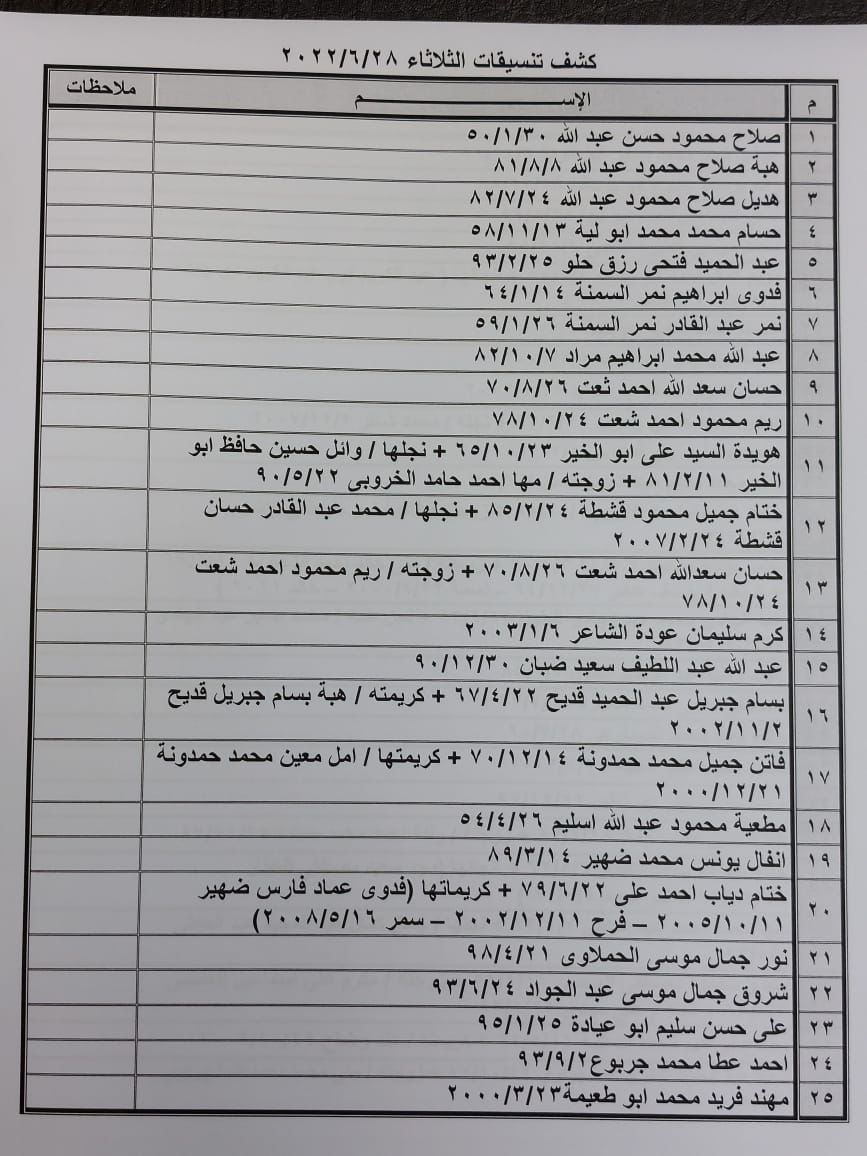 كشف تنسيقات الثلاثاء ٢٠٢٢/٦/٢٨
م الإســـــــــم ملاحظات
١ صلاح محمود حسن عبد الله ٥٠/١/٣٠
٢ هبة صلاح محمود عبد الله ٨١/٨/٨
٣ هديل صلاح محمود عبد الله ٨٢/٧/٢٤
٤ حسام محمد محمد ابو لية ٥٨/١١/١٣
٥ عبد الحميد فتحى رزق حلو ٩٣/٢/٢٥
٦ فدوى ابراهيم نمر السمنة ٦٤/١/١٤
٧ نمر عبد القادر نمر السمنة ٥٩/١/٢٦
٨ عبد الله محمد ابراهيم مراد ٨٢/١٠/٧
٩ حسان سعد الله احمد ثعت ٧٠/٨/٢٦
١٠ ريم محمود احمد شعت ٧٨/١٠/٢٤
١١ هويدة السيد على ابو الخير ٦٥/١٠/٢٣ + نجلها / وائل حسين حافظ ابو
الخير ٨١/٢/١١ + زوجته / مها احمد حامد الخروبى ٩٠/٥/٢٢
١٢ ختام جميل محمود قشطة ٨٥/٢/٢٤ + نجلها / محمد عبد القادر حسان
قشطة ٢٠٠٧/٢/٢٤
١٣ حسان سعدالله احمد شعت ٧٠/٨/٢٦ + زوجته / ريم محمود احمد شعت
٧٨/١٠/٢٤
١٤ كرم سليمان عودة الشاعر ٢٠٠٣/١/٦
١٥ عبد الله عبد اللطيف سعيد ضبان ٩٠/١٢/٣٠
١٦ بسام جبريل عبد الحميد قديح ٦٧/٤/٢٢ + كريمته / هبة بسام جبريل قديح
٢٠٠٢/١١/٢
١٧ فاتن جميل محمد حمدونة ٧٠/١٢/١٤ + كريمتها / امل معين محمد حمدونة
٢٠٠٠/١٢/٢١
١٨ مطعية محمود عبد الله اسليم ٥٤/٤/٢٦
١٩ انفال يونس محمد ضهير ٨٩/٣/١٤
٢٠ ختام دياب احمد على ٧٩/٦/٢٢ + كريماتها (فدوى عماد فارس ضهير
٢٠٠٥/١٠/١١ – فرح ٢٠٠٢/١٢/١١ – سمر ٢٠٠٨/٥/١٦)
٢١ نور جمال موسى الحملاوى ٩٨/٤/٢١
٢٢ شروق جمال موسى عبد الجواد ٩٣/٦/٢٤
٢٣ على حسن سليم ابو عيادة ٩٥/١/٢٥
٢٤ احمد عطا محمد جربوع٩٣/٩/٢
٢٥ مهند فريد محمد ابو طعيمة٢٠٠٠/٣/٢٣